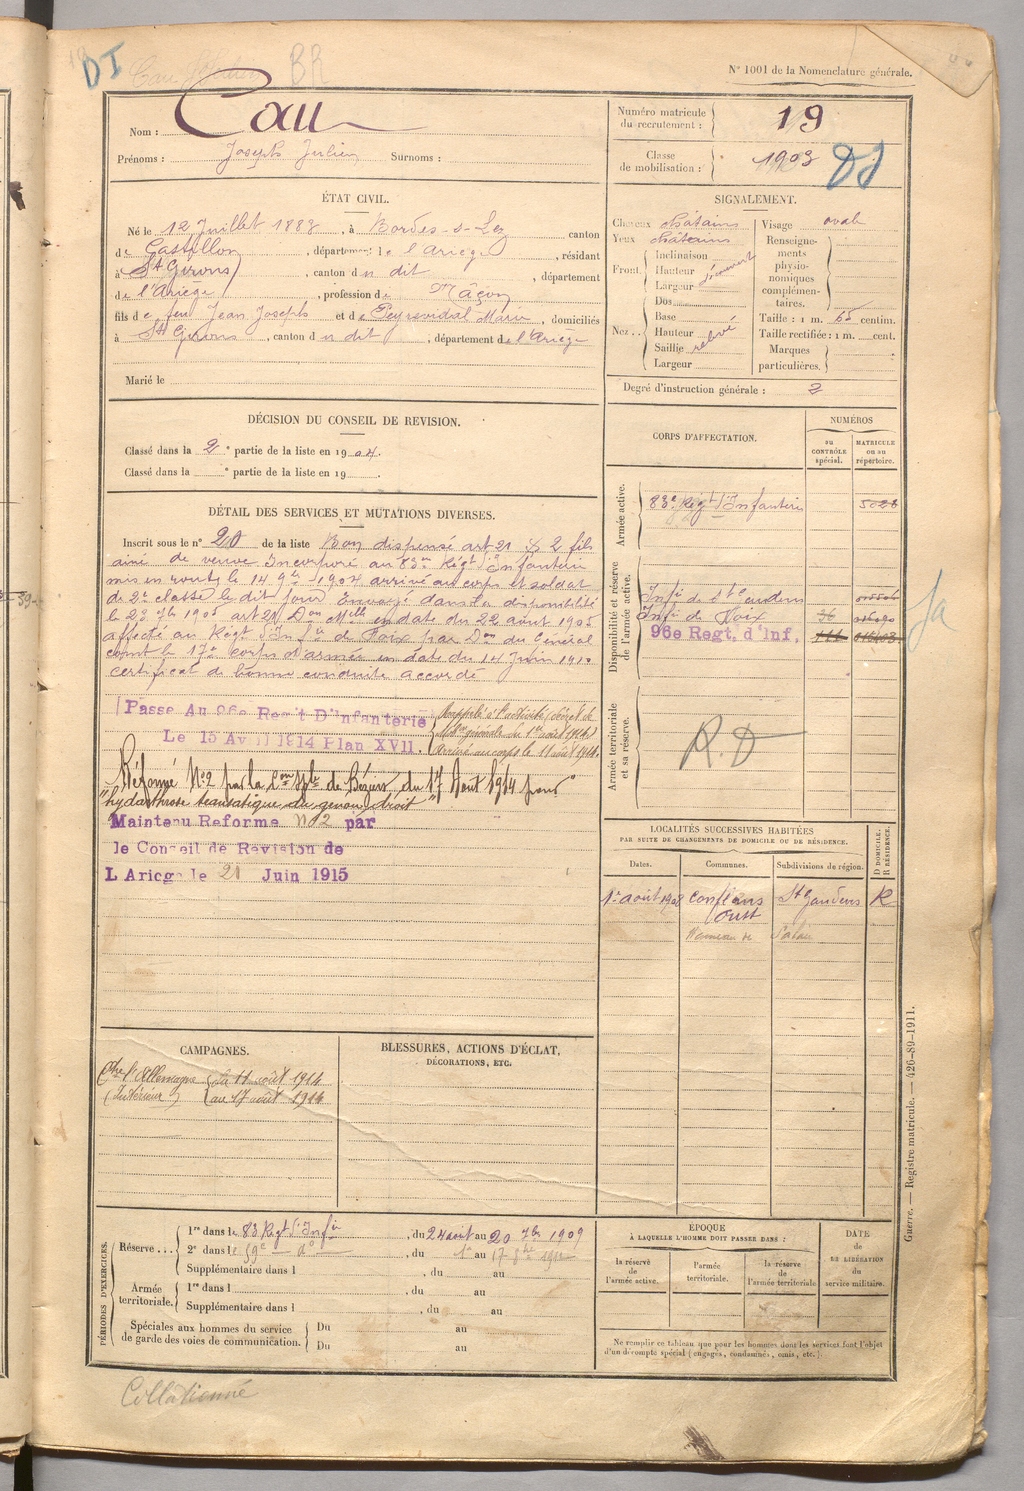 DI
BR
N° 1001 de la Nomenclature générale.
Nom : Cau
Prénoms : Joseph Julien Surnoms :
Numéro matricule du recrutement : 19
Classe de mobilisation : 1903
DI
ÉTAT CIVIL.
Né le 12 Juillet 1883, à Bordes-s-Lez canton
de Castillon, département de l'Ariège, résidant
à St Girons, canton du dit, département
de l'Ariège, profession de Maçon
fils de feu Jean Joseph et de Peyrevidal Marie, domiciliés
à St Girons, canton du dit, département de l'Ariège
Marié le
SIGNALEMENT.
Cheveux châtains
Yeux châtains
Front. Inclinaison
Hauteur découvert
Largeur
Nez.. Dos
Base
Hauteur
Saillie relevé
Largeur
Visage ovale
Renseignements physionomiques complémentaires.
Taille : 1 m. 65 centim.
Taille rectifiée : 1 m. cent.
Marques particulières.
Degré d'instruction générale : 2
DÉCISION DU CONSEIL DE REVISION.
Classé dans la 2e partie de la liste en 1904.
Classé dans la e partie de la liste en 19 .
DÉTAIL DES SERVICES ET MUTATIONS DIVERSES.
Inscrit sous le n° 20 de la liste Bon dispensé art 21 § 2 fils
ainé de veuve Incorporé au 83me Régt d'Infanterie
mis en route le 14 9bre 1904 arrivé au corps et soldat
de 2e classe le dit jour Envoyé dans la disponibilité
le 23 7bre 1905 art 21 Don Mlle en date du 22 août 1905
affecté au Régt d'Infie de Foix par Don du Général
comt le 17e corps d'armée en date du 14 Juin 1910
certificat de bonne conduite accordé
Passé Au 96e Regit D'Infanterie
Le 15 Avril 1914 Plan XVII.
Rappelé à l'activité (décret de
Mobon générale du 1er août 1914)
Arrivé au corps le 11 août 1914.
Réformé No 2 par la Con Sple de Béziers du 17 Aout 1914 pour
"hydarthrose traumatique du genou droit"
Maintenu Reforme no 2 par
le Conseil de Revision de
L Ariege le 21 Juin 1915
CORPS D'AFFECTATION.
NUMÉROS
au CONTRÔLE spécial.
MATRICULE ou au répertoire.
Armée active.
83e Régt d'Infanterie 5026
Disponibilité et réserve de l'armée active.
Infie de St Gaudens
Infie de Foix 36
96e Regt. d'Inf,
Armée territoriale et sa réserve.
R.D
LOCALITÉS SUCCESSIVES HABITÉES
PAR SUITE DE CHANGEMENTS DE DOMICILE OU DE RÉSIDENCE.
Dates. Communes. Subdivisions de région. D DOMICILE. R RÉSIDENCE.
1er août 1908 Conflens St Gaudens R
Oust
Hameau de Salau
CAMPAGNES.
Ctre l'Allemagne du 11 août 1914
(Intérieur) au 17 août 1914
BLESSURES, ACTIONS D'ÉCLAT,
DÉCORATIONS, ETC.
PÉRIODES D'EXERCICES.
Réserve... 1re dans le 83 Régt d'Infie, du 24 août au 20 7bre 1909
2e dans le 59e, du 1er au 17 8bre
Supplémentaire dans l , du au
Armée territoriale. 1re dans l , du au
Supplémentaire dans l , du au
Spéciales aux hommes du service de garde des voies de communication. Du au
Du au
ÉPOQUE
À LAQUELLE L'HOMME DOIT PASSER DANS :
la réserve de l'armée active.
l'armée territoriale.
la réserve de l'armée territoriale
DATE de LA LIBÉRATION du service militaire.
Ne remplir ce tableau que pour les hommes dont les services font l'objet
d'un décompte spécial (engagés, condamnés, omis, etc.).
Guerre. — Registre matricule. — 426-89-1911.
Collationné